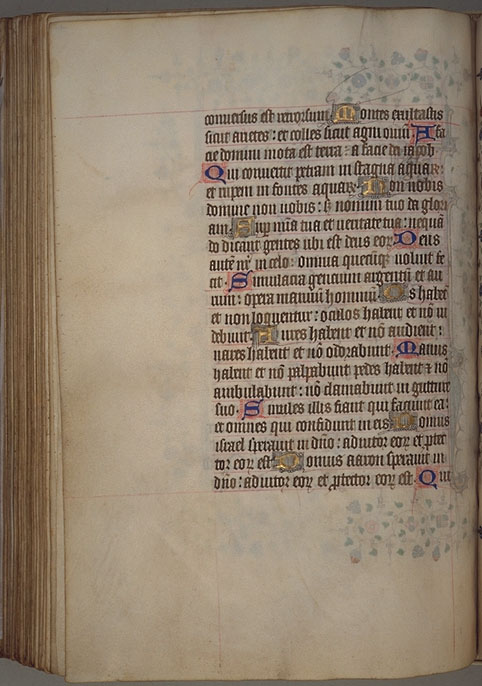 conuersus est retrorsum Montes exultastis
sicut arietes: et colles sicut agni ouiũ. A fa
cie domini mota est terra: a facie dei iacob
Qui conuertit petram in stagna aquarꝝ:
et rupem in fontes aquarꝝ. Non nobis
domine non nobis: sꝫ nomini tuo da glori
am. Sup mĩa tua et ueritate tua: nequã
do dicant gentes ubi est deus eorꝝ Deus
autẽ nr̃ in celo: omnia quecũqꝫ uoluit fe
cit. Simulacra gencium argentũ et au
rum: opera manuum hominũ Os habẽt
et non loquentur: oculos habent et nõ ui
debunt. Aures habent et nõ audient:
nares habent et nõ odorabunt. Manus
habent et nõ palpabunt pedes habent ⁊ nõ
ambulabunt: nõ clamabunt in gutture
suo. Similes illis fiant qui faciunt ea:
et omnes qui confidunt in eis Domus
israel sperauit in dño: adiutor eorꝝ et ꝓtec
tor eorꝝ est. Domus aaron sperauit in
dño: adiutor eorꝝ et ꝓtector eorꝝ est. Qui